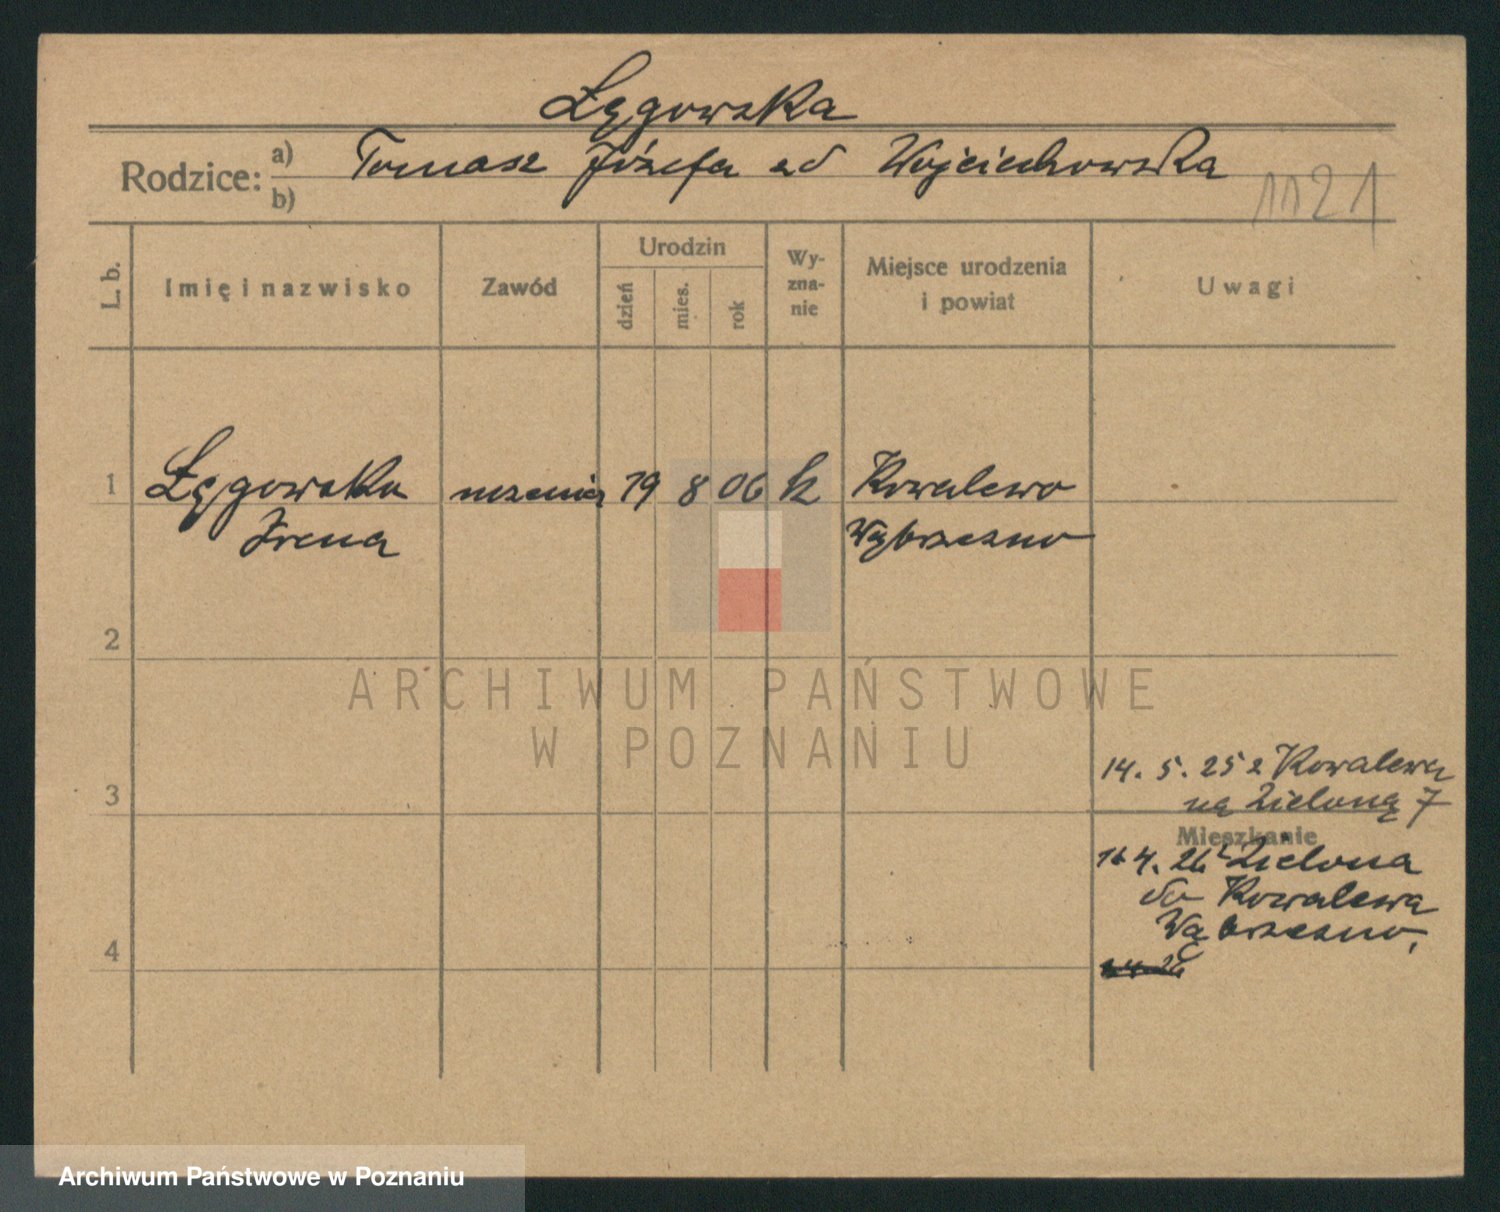 Łęgowska
Rodzice: a) Tomasz Józefa zd Wojciechowska
b)
1121
L. b.
Imię i nazwisko
Zawód
Urodzin
dzień
mies.
rok
Wy-
zna-
nie
Miejsce urodzenia
i powiat
Uwagi
1 Łęgowska uczenica 19 8 06 k Kowalewo
Irena Wąbrzezno
2
ARCHIWUM PAŃSTWOWE
W POZNANIU
14. 5. 25 z Kowalewa
3 na Zieloną 7
Mieszkanie
16 4. 26 z Zielona
do Kowalewa
Wąbrzezno,
4
Archiwum Państwowe w Poznaniu